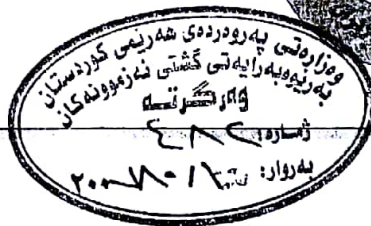 وەزارەتی پەروەردەی هەرێمی کوردستان
بەڕێوەبەرایەتی گشتی ئەزموونەکان
وەرگرتە
ژمارە: ٤٨٢
بەروار: